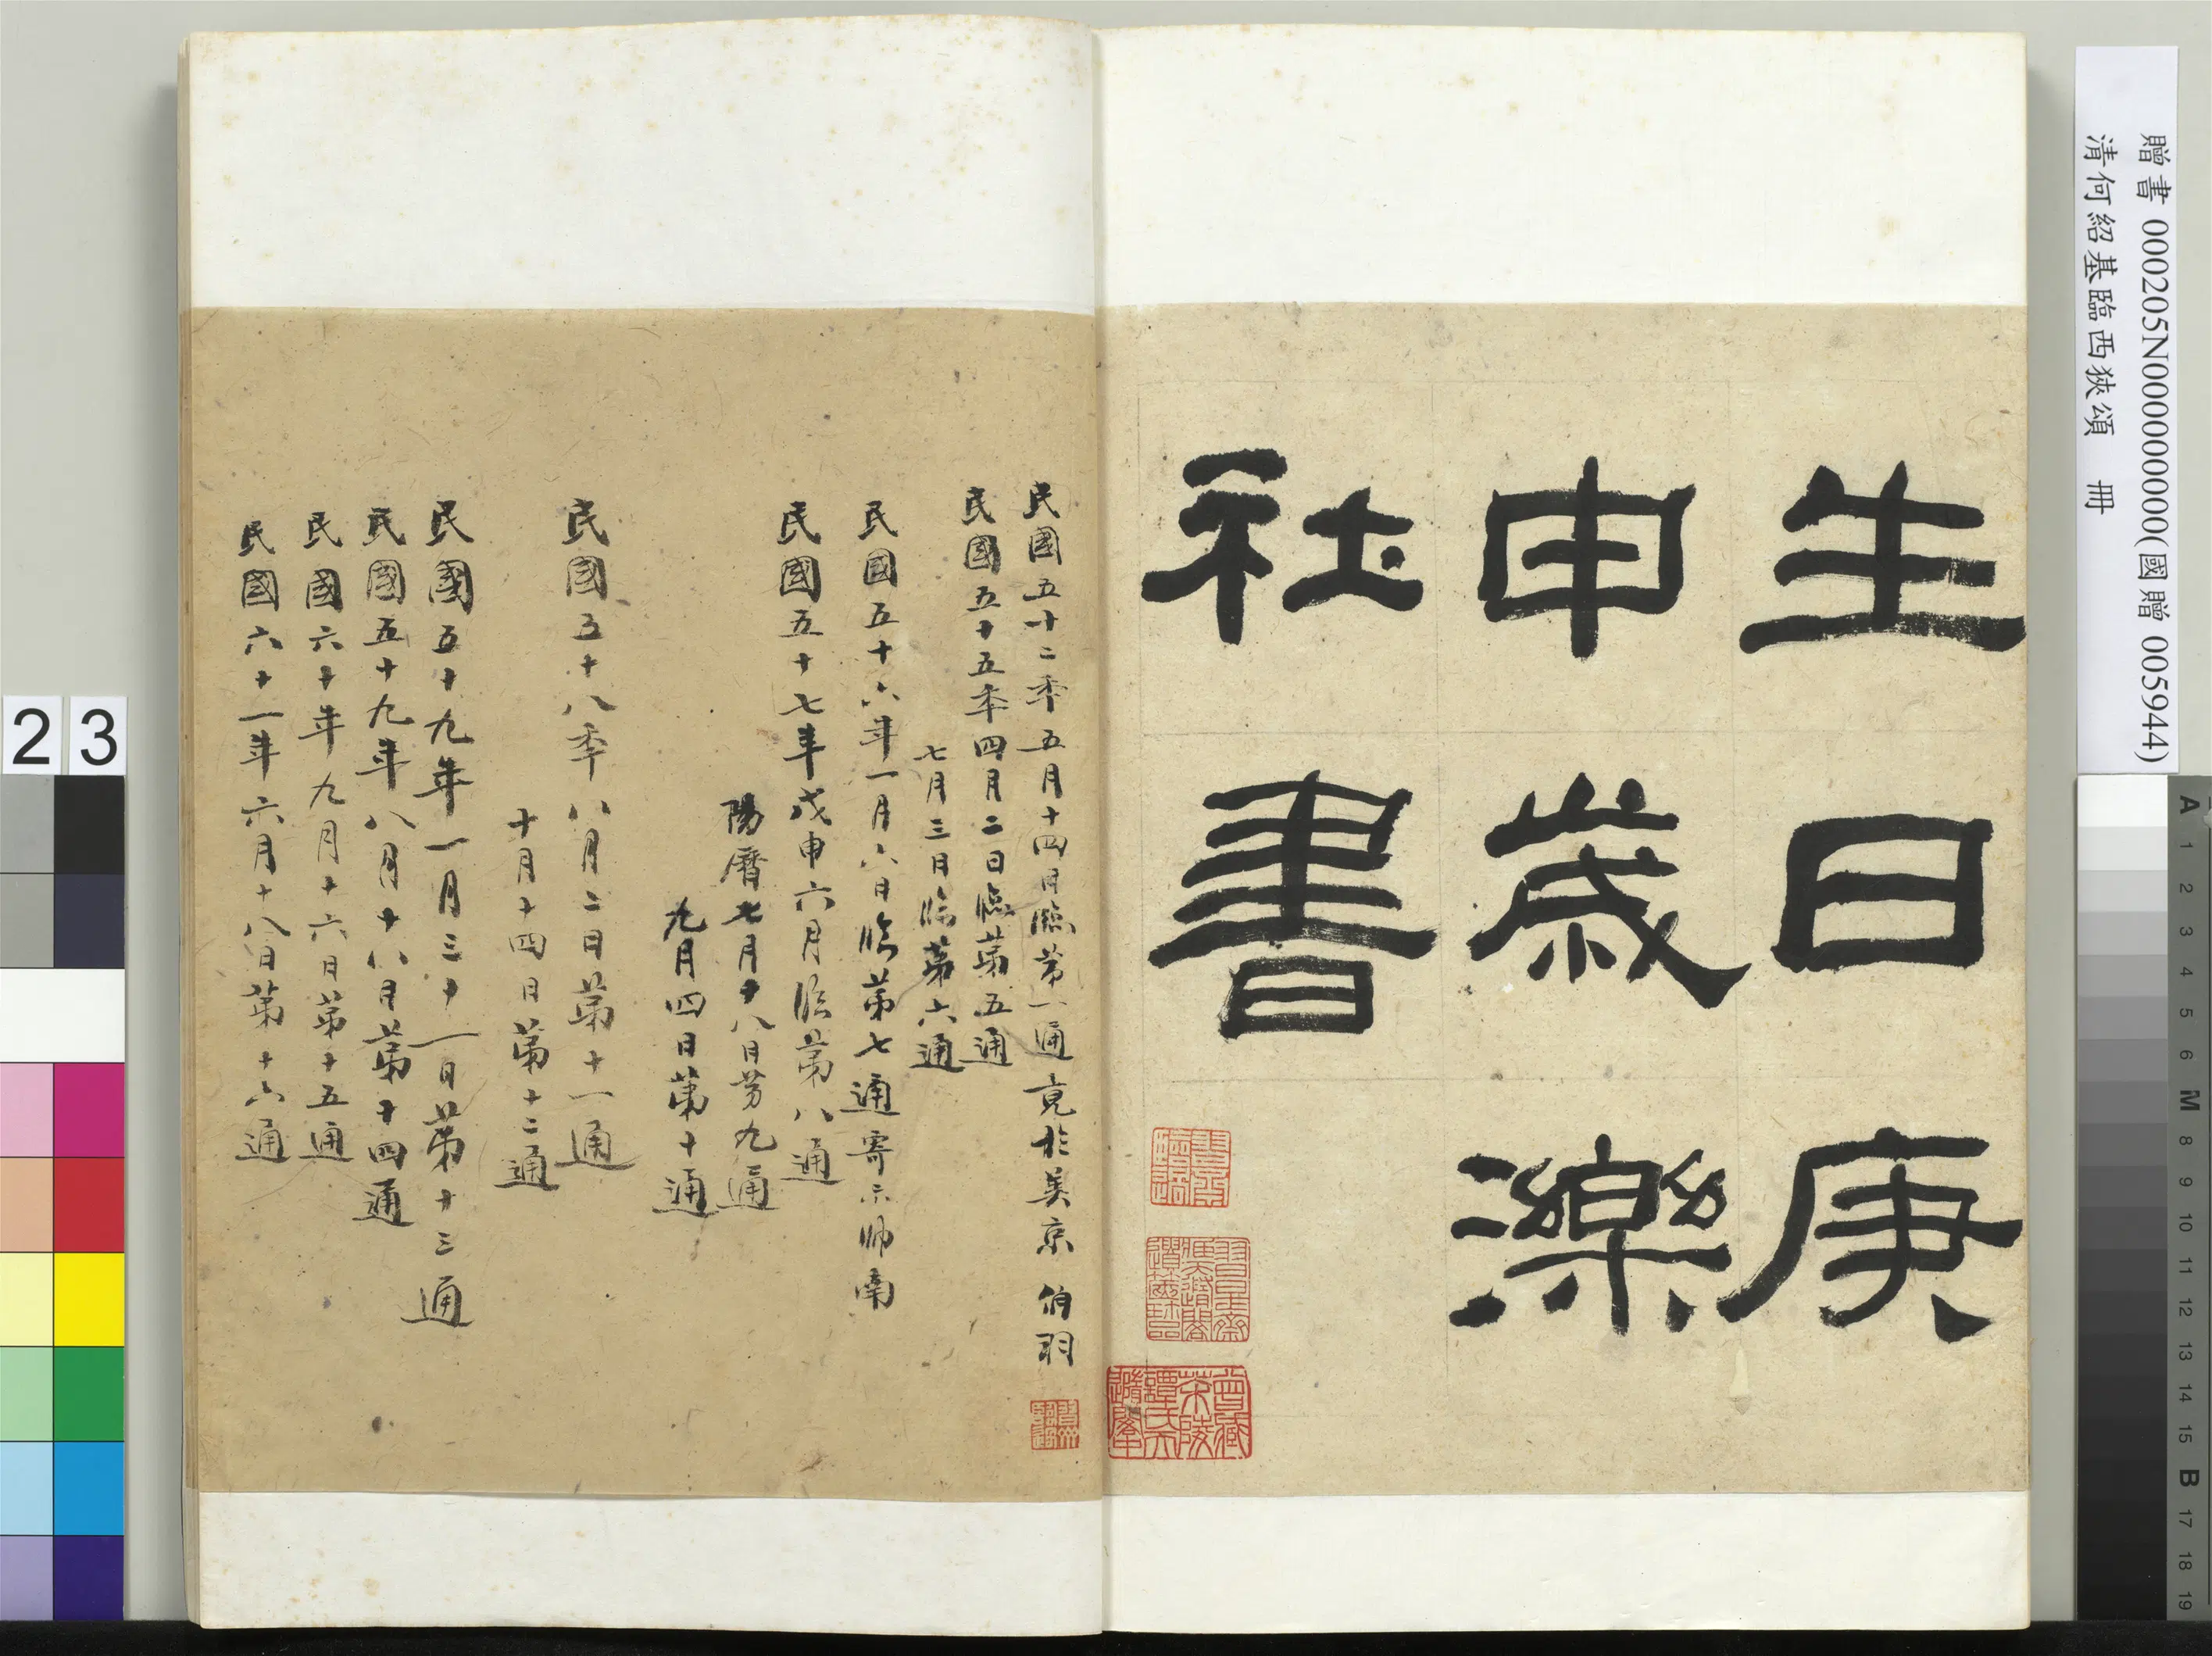 生日庚
申歲濼
社書
民國五十二年五月十四日臨第一通竟於美京 伯羽
民國五十五年四月二日臨第五通
七月三日臨第六通
民國五十六年一月六日臨第七通寄示帥南
民國五十七年戊申六月臨第八通
陽曆七月十八日第九通
九月四日第十通
民國五十八年八月二日第十一通
十月十四日第十二通
民國五十九年一月三十一日第十三通
民國五十九年八月十八日第十四通
民國六十年九月十六日第十五通
民國六十一年六月十八日第十六通
贈書 000205N000000000(國贈 005944)
清何紹基臨西狹頌 冊
2 3
A 1 2 3 4 5 6 M 8 9 10 11 12 13 14 15 B 17 18 19